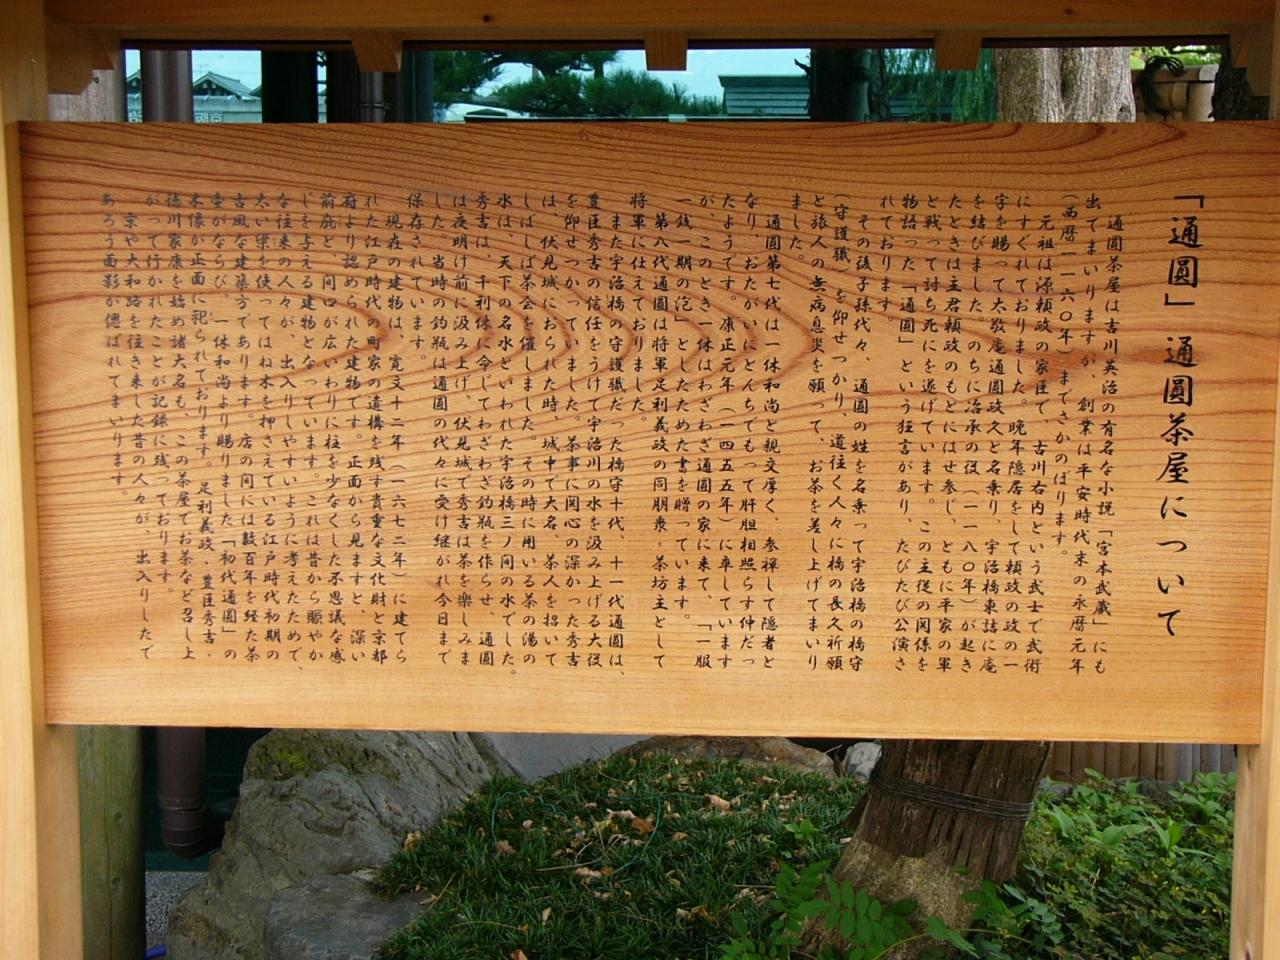 「通圓」通圓茶屋について
通圓茶屋は吉川英治の有名な小説「宮本武蔵」にも
出てまいりますが、創業は平安時代末の永暦元年
（西暦一一六〇年）までさかのぼります。
元祖は源頼政の家臣で、古川右内という武士で武術
にすぐれておりました。晩年隠居をして頼政の政の一
字を賜って太敬庵通圓政久と名乗り、宇治橋東詰に庵
を結びました。のちに治承の役（一一八〇年）が起き
たときは主君頼政のもとにはせ参じ、ともに平家の軍
と戦って討ち死にを遂げています。この主従の関係を
物語った「通圓」という狂言があり たびたび公演さ
れております。
その後子孫代々、通圓の姓を名乗って宇治橋の橋守
（守護職）を仰せつかり、道往く人々に橋の長久祈願
と旅人の無病息災を願って、お茶を差し上げてまいり
ました。
通圓第七代は一休和尚と親交厚く、参禅して隠者と
なり、おたがいにとんちでもって肝胆相照らす仲だっ
たようです。康正元年（一四五五年）に卒しています
が、このとき一休はわざわざ通圓の家に来て、「一服
一銭一期の泡」としたためた書を贈っています。
第八代通圓は将軍足利義政の同朋衆、茶坊主として
将軍に仕えておりました。
また宇治橋の守護職だった橋守十代、十一代通圓は、
豊臣秀吉の信任をうけて宇治川の水を汲み上げる大役
を仰せつかっていました。茶事に関心の深かった秀吉
は、伏見城におられた時、城中で大名、茶人を招いて
しばしば茶会を催しました。その時に用いる茶の湯の
水は、天下の名水といわれた宇治橋三ノ間の水でした。
秀吉は、千利休に令じてわざわざ釣瓶を作らせ、通圓
は夜明け前に汲み上げ、伏見城で秀吉は茶を楽しみま
した。当時の釣瓶は通圓の代々に受け継がれ今日まで
保存されています。
現在の建物は、寛文十二年（一六七二年）に建てら
れた江戸時代の町家の遺構を残す貴重な文化財と京都
府より認められた建物です。正面から見ますと、深い
前庇と、間口が広いわりに柱を少なくした不思議な感
じを与える建物となっています。これは昔から賑やか
な往来の人々が、出入りしやすいように考えたためで、
太い梁を使ってはね木を押さえている江戸時代初期の
古風な建築方であります。店の間には数百年を経た茶
壷がならび、一休和尚より賜りました「初代通圓」の
木像が正面に祀られております。足利義政・豊臣秀吉・
徳川家康を始め諸大名も、この茶屋でお茶など召し上
がって行かれたことが記録に残っております。
京や大和路を往き来した昔の人々が、出入りしたで
あろう面影が偲ばれてまいります。